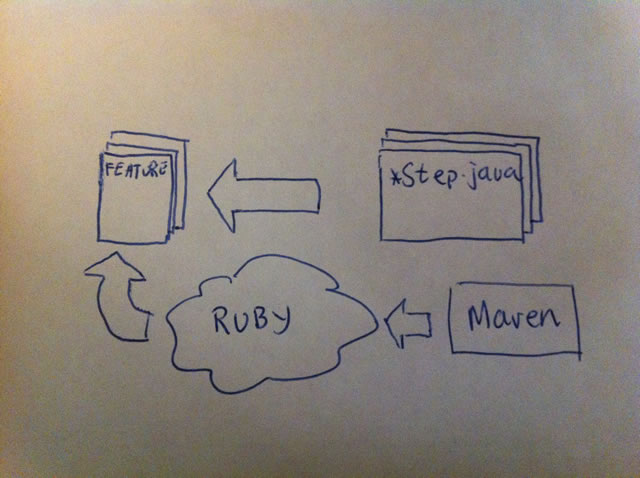 FEATURE
*Step.java
RUBY
Maven